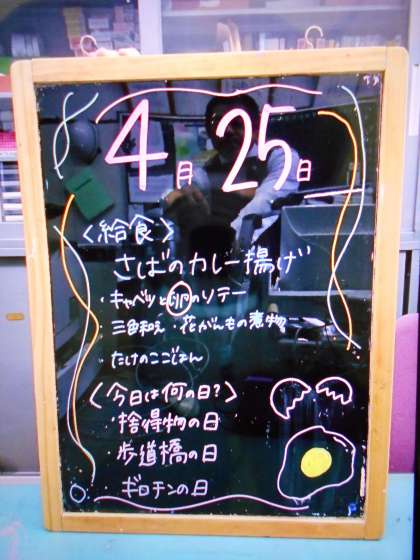 4月25日
〈給食〉
さばのカレー揚げ
・キャベツと卵のソテー
・三色和え・花がんもの煮物
・たけのこごはん
〈今日は何の日?〉
・拾得物の日
・歩道橋の日
・ギロチンの日